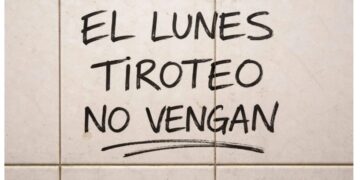 EL LUNES
TIROTEO
NO VENGAN